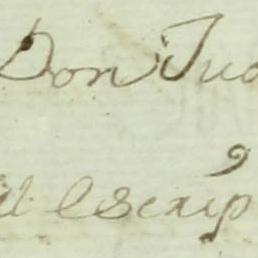 Don Jua
el Escrip